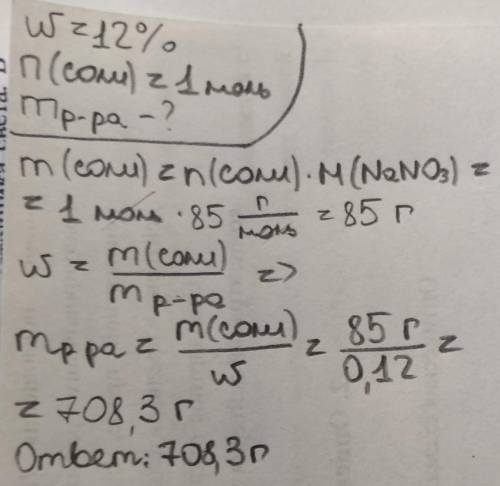 w = 12%
n(соли) = 1 моль
mр-ра - ?
m(соли) = n(соли) · M(NaNO₃) =
= 1 моль · 85 г/моль = 85 г
w = m(соли)/mр-ра =>
mр ра = m(соли)/w = 85 г/0,12 =
= 708,3 г
Ответ: 708,3 г